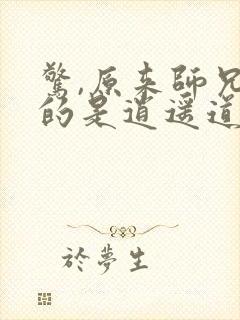 驚,原来師兄
的是逍遥道
於夢生